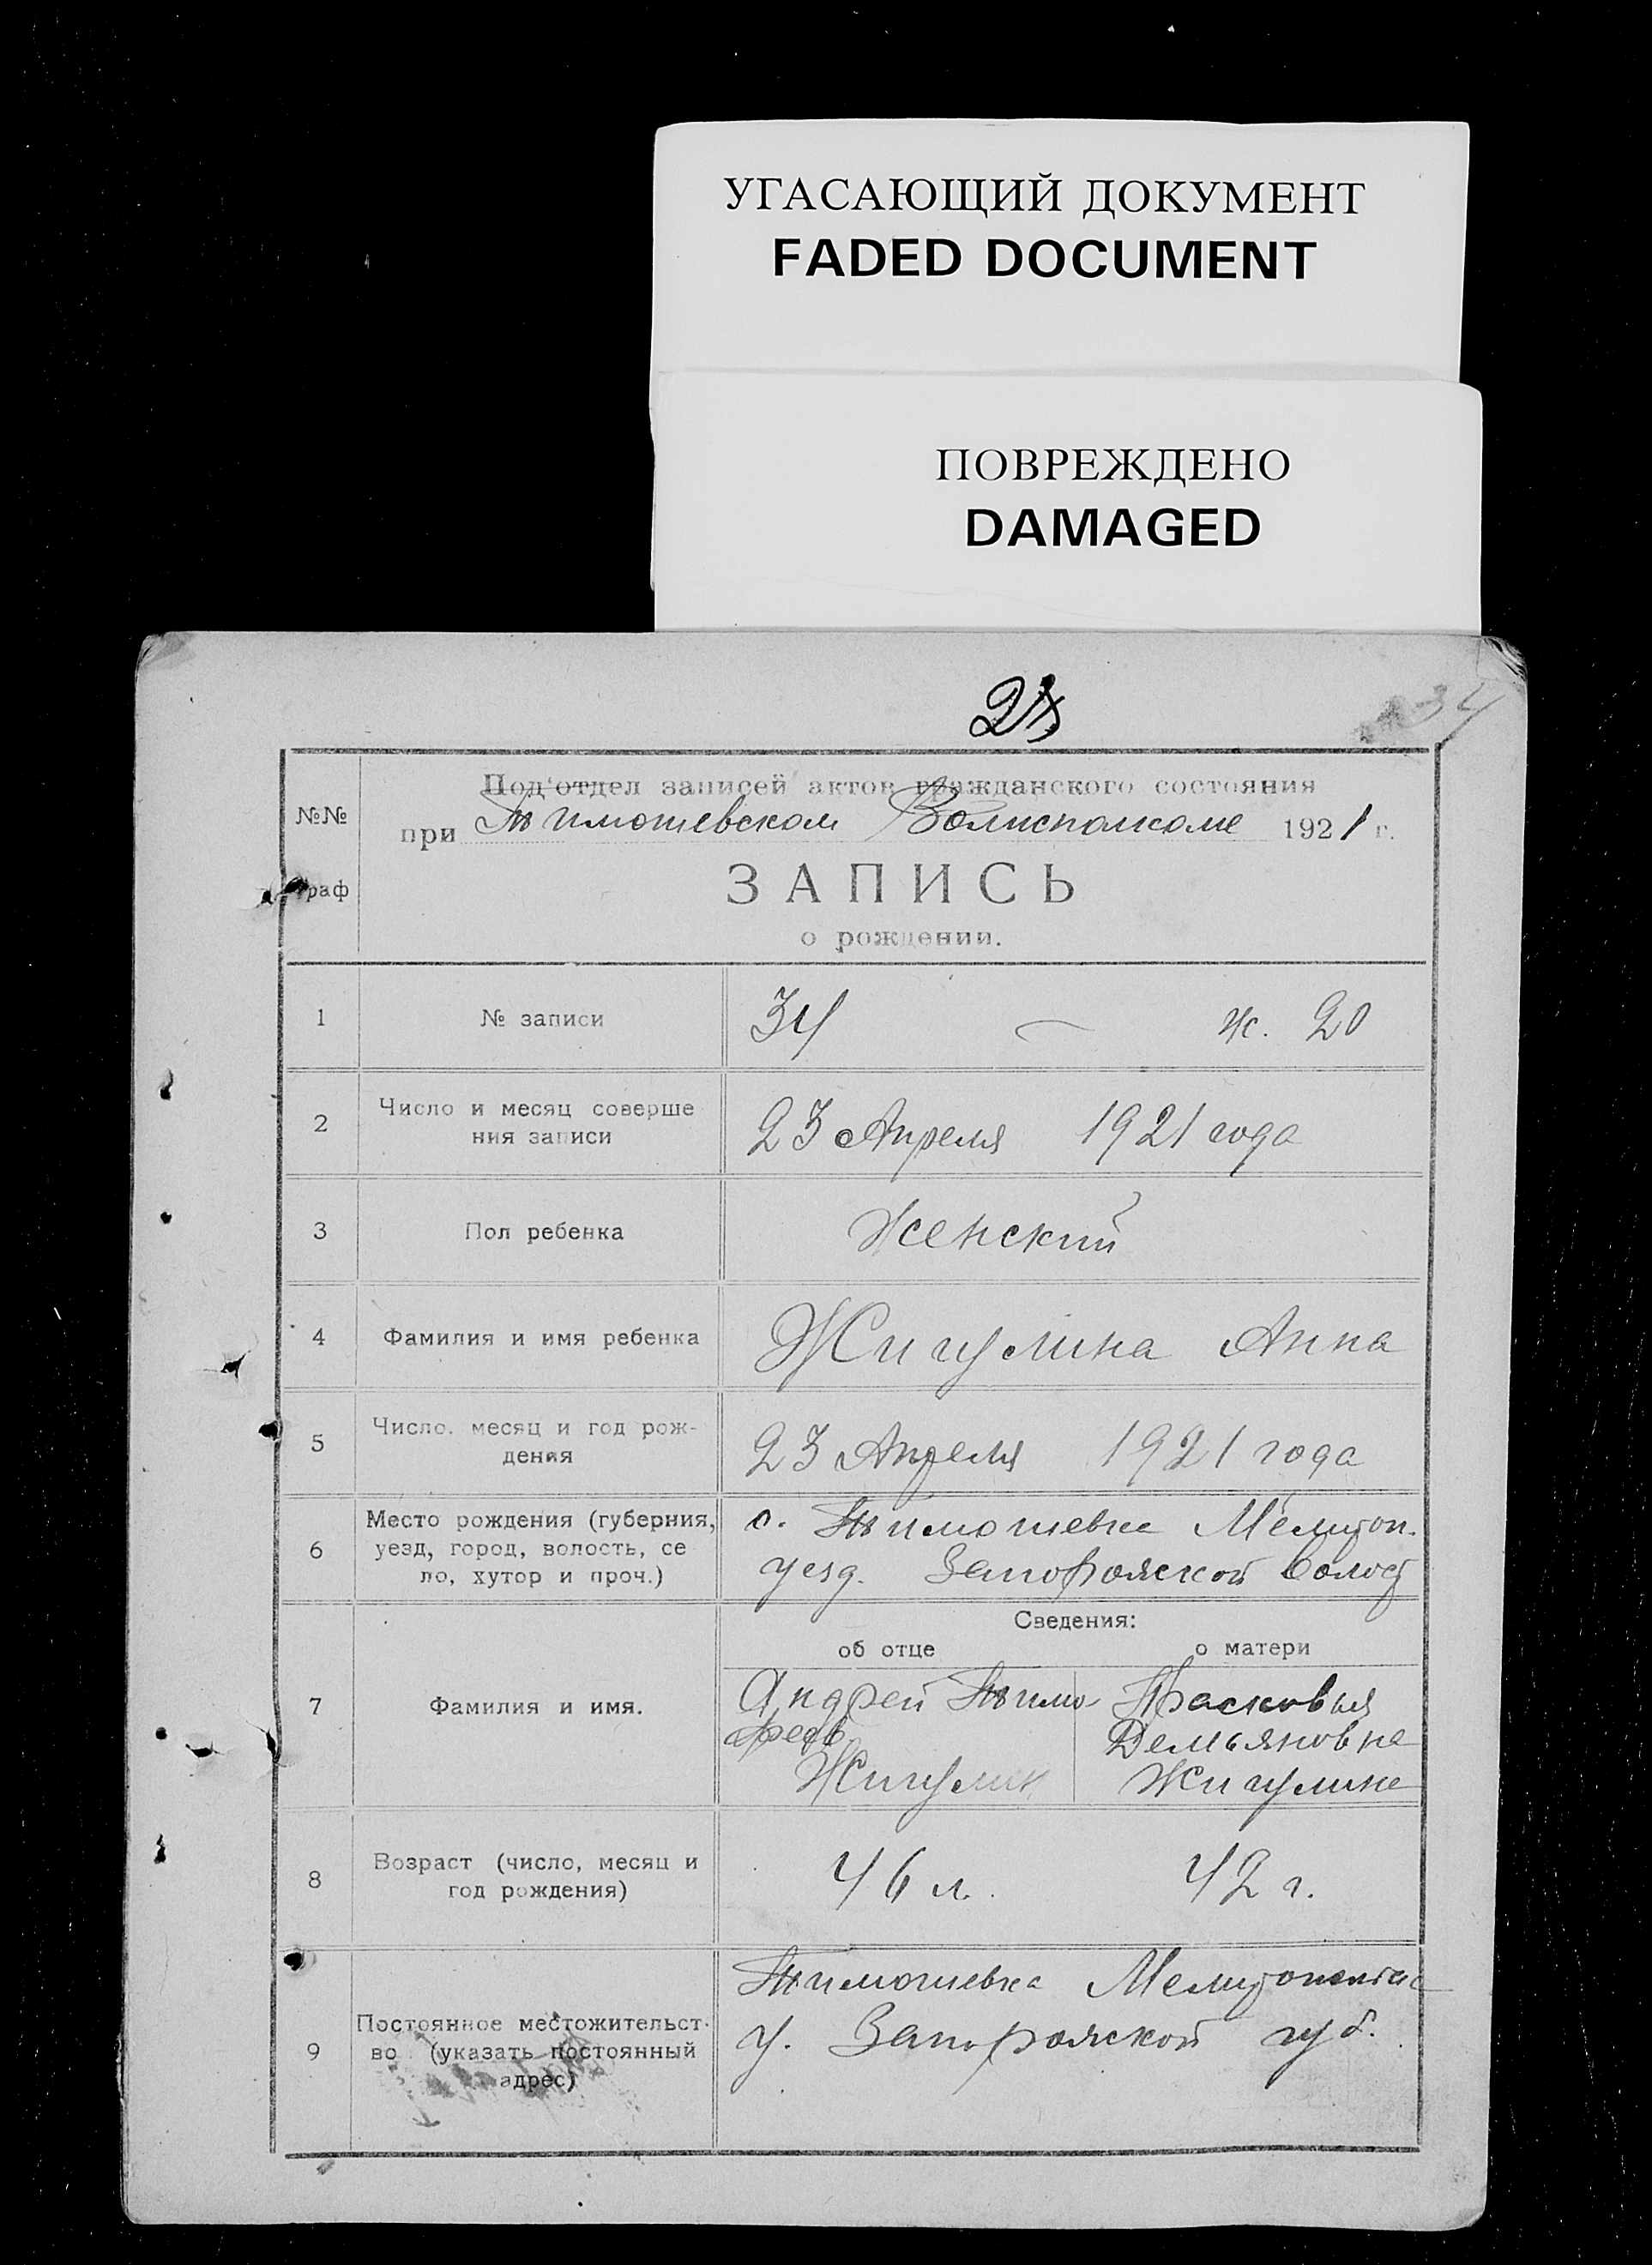 УГАСАЮЩИЙ ДОКУМЕНТ
FADED DOCUMENT
ПОВРЕЖДЕНО
DAMAGED
34
№№
граф
Под'отдел записей актов гражданского состояния
при Тимошевском Волисполкоме 1921 г.
ЗАПИСЬ
о рождении.
1 № записи 34 — ж. 20
2 Число и месяц соверше
ния записи 23 Апреля 1921 года
3 Пол ребенка Женский
4 Фамилия и имя ребенка Жигулина Анна
5 Число, месяц и год рож-
дения 23 Апреля 1921 года
6 Место рождения (губерния,
уезд, город, волость, се
ло, хутор и проч.)
с. Тимошевка Мелитоп.
уезд. Запорожской волост
Сведения:
об отце о матери
7 Фамилия и имя.
Андрей Тимо-
феев
Жигулин
Прасковья
Демьяновна
Жигулина
8 Возраст (число, месяц и
год рождения)
46 л. 42 г.
9 Постоянное местожительст-
во (указать постоянный
адрес)
Тимошевка
у. Запорожской губ.